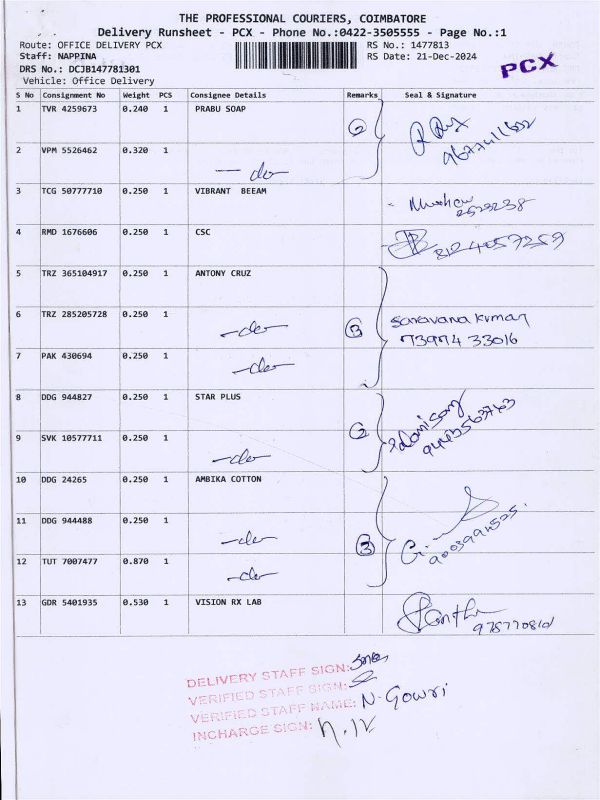 THE PROFESSIONAL COURIERS, COIMBATORE
Delivery Runsheet - PCX - Phone No.:0422-3505555 - Page No.:1
Route: OFFICE DELIVERY PCX
RS No.: 1477813
Staff: NAPPINA
RS Date: 21-Dec-2024
DRS No.: DCJB147781301
Vehicle: Office Delivery
PCX
S No Consignment No Weight PCS Consignee Details Remarks Seal & Signature
1 TVR 4259673 0.240 1 PRABU SOAP
2
2 VPM 5526462 0.320 1 -do-
3 TCG 50777710 0.250 1 VIBRANT BEEAM
4 RMD 1676606 0.250 1 CSC
8124057257
5 TRZ 365104917 0.250 1 ANTONY CRUZ
6 TRZ 285205728 0.250 1 -do- 3 Saravana kumar
73974 33016
7 PAK 430694 0.250 1 -do-
8 DDG 944827 0.250 1 STAR PLUS
2
9 SVK 10577711 0.250 1 -do-
10 DDG 24265 0.250 1 AMBIKA COTTON
11 DDG 944488 0.250 1 -do- 3
12 TUT 7007477 0.870 1 -do-
13 GDR 5401935 0.530 1 VISION RX LAB
DELIVERY STAFF SIGN:
VERIFIED STAFF SIGN:
VERIFIED STAFF NAME: N. Gowri
INCHARGE SIGN: